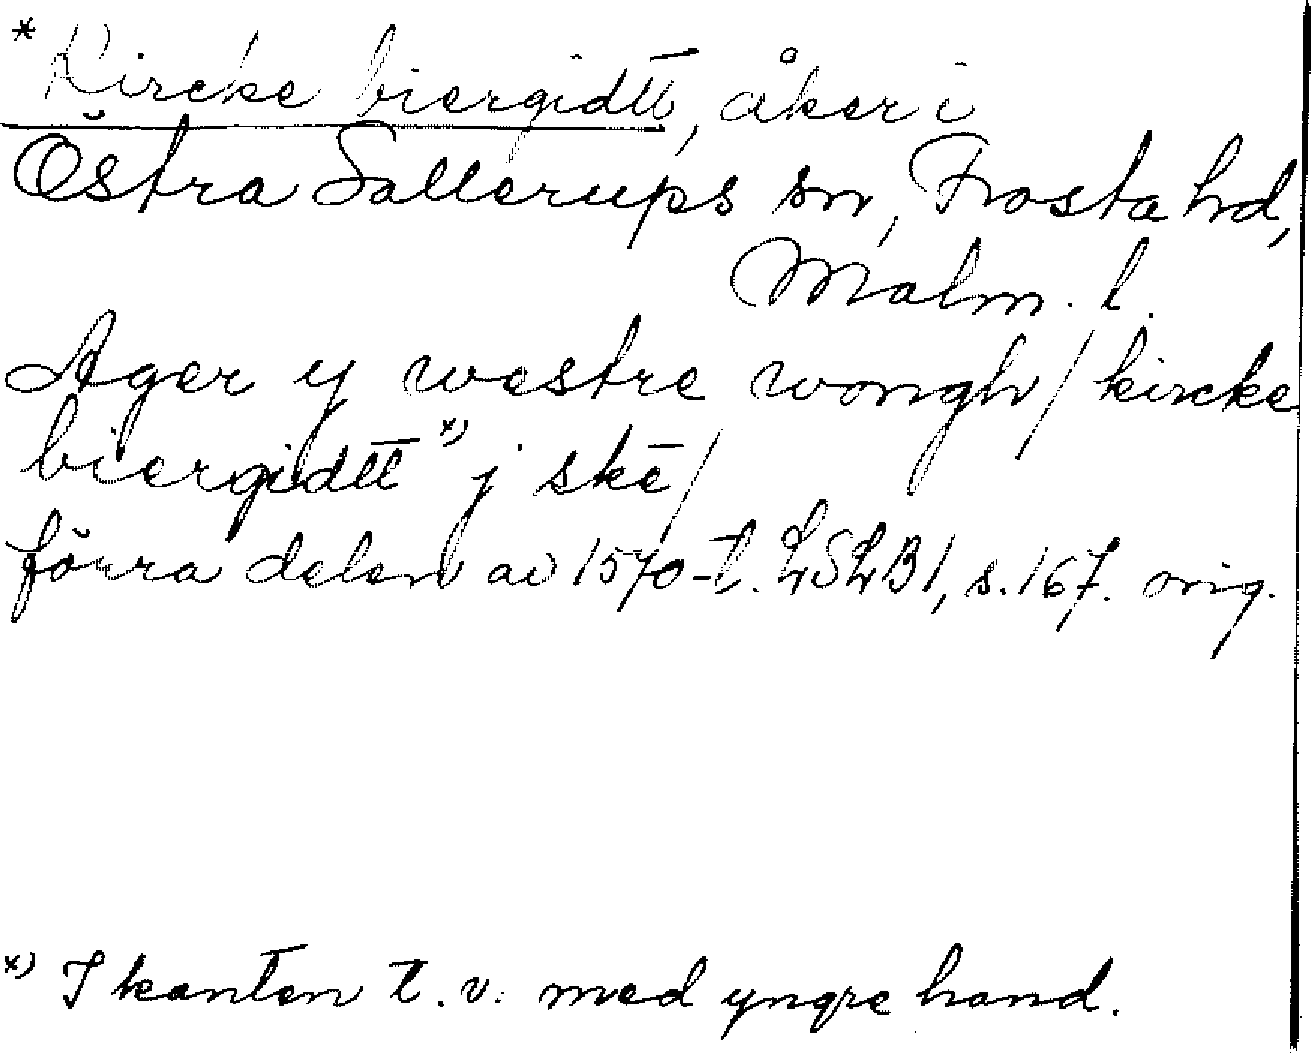 * Kircke biergidtt, åker i
Östra Sallerups sn, Frosta hd,
Malm. l.
Ager y westre wongh / kircke
biergidtt *) j skē /
förra delen av 1570-t. LSLB1, s. 167. orig.
*) I kanten t. v. med yngre hand.